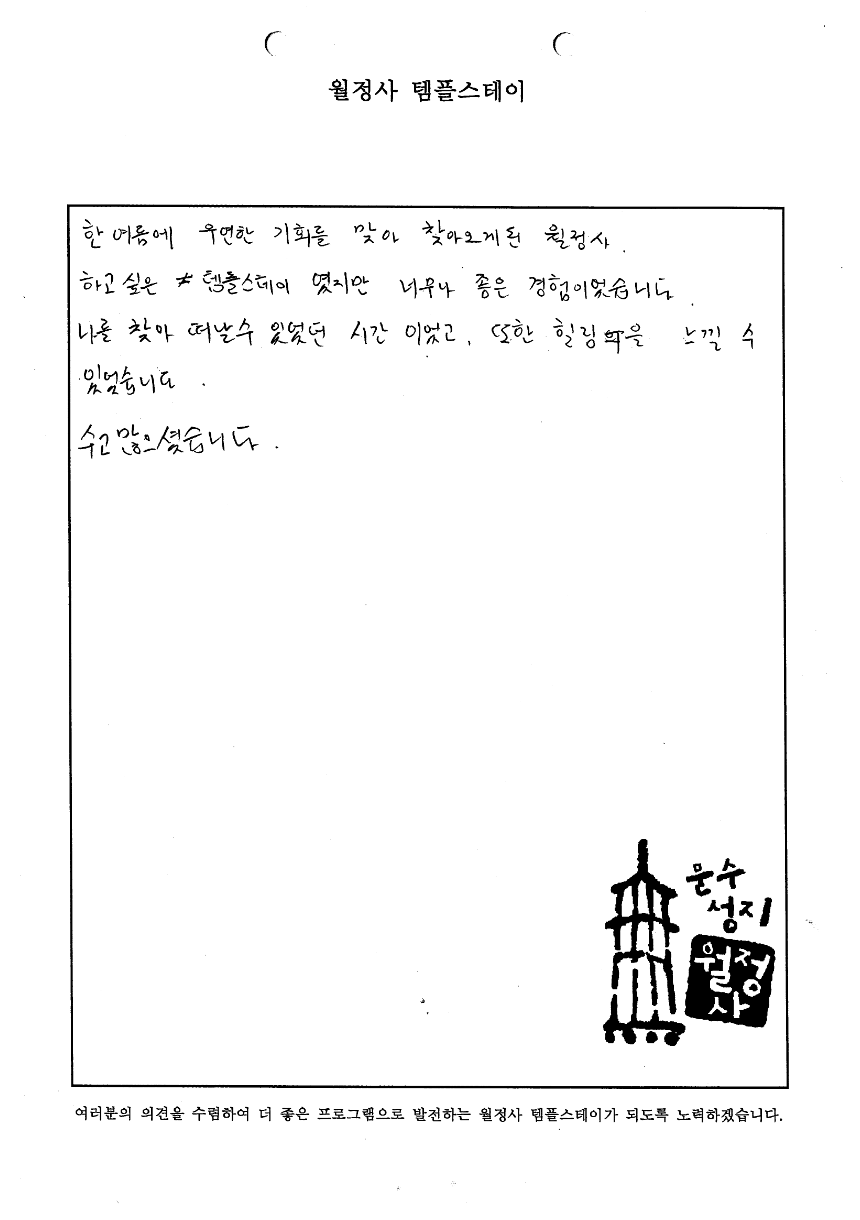 월정사 템플스테이
한 여름에 우연한 기회를 맞아 찾아오게 된 월정사.
하고 싶은 템플스테이 였지만 너무나 좋은 경험이었습니다.
나를 찾아 떠날수 있었던 시간 이었고, 또한 힐링을 느낄 수
있었습니다.
수고 많으셨습니다.
문수
성지
월정
사
여러분의 의견을 수렴하여 더 좋은 프로그램으로 발전하는 월정사 템플스테이가 되도록 노력하겠습니다.